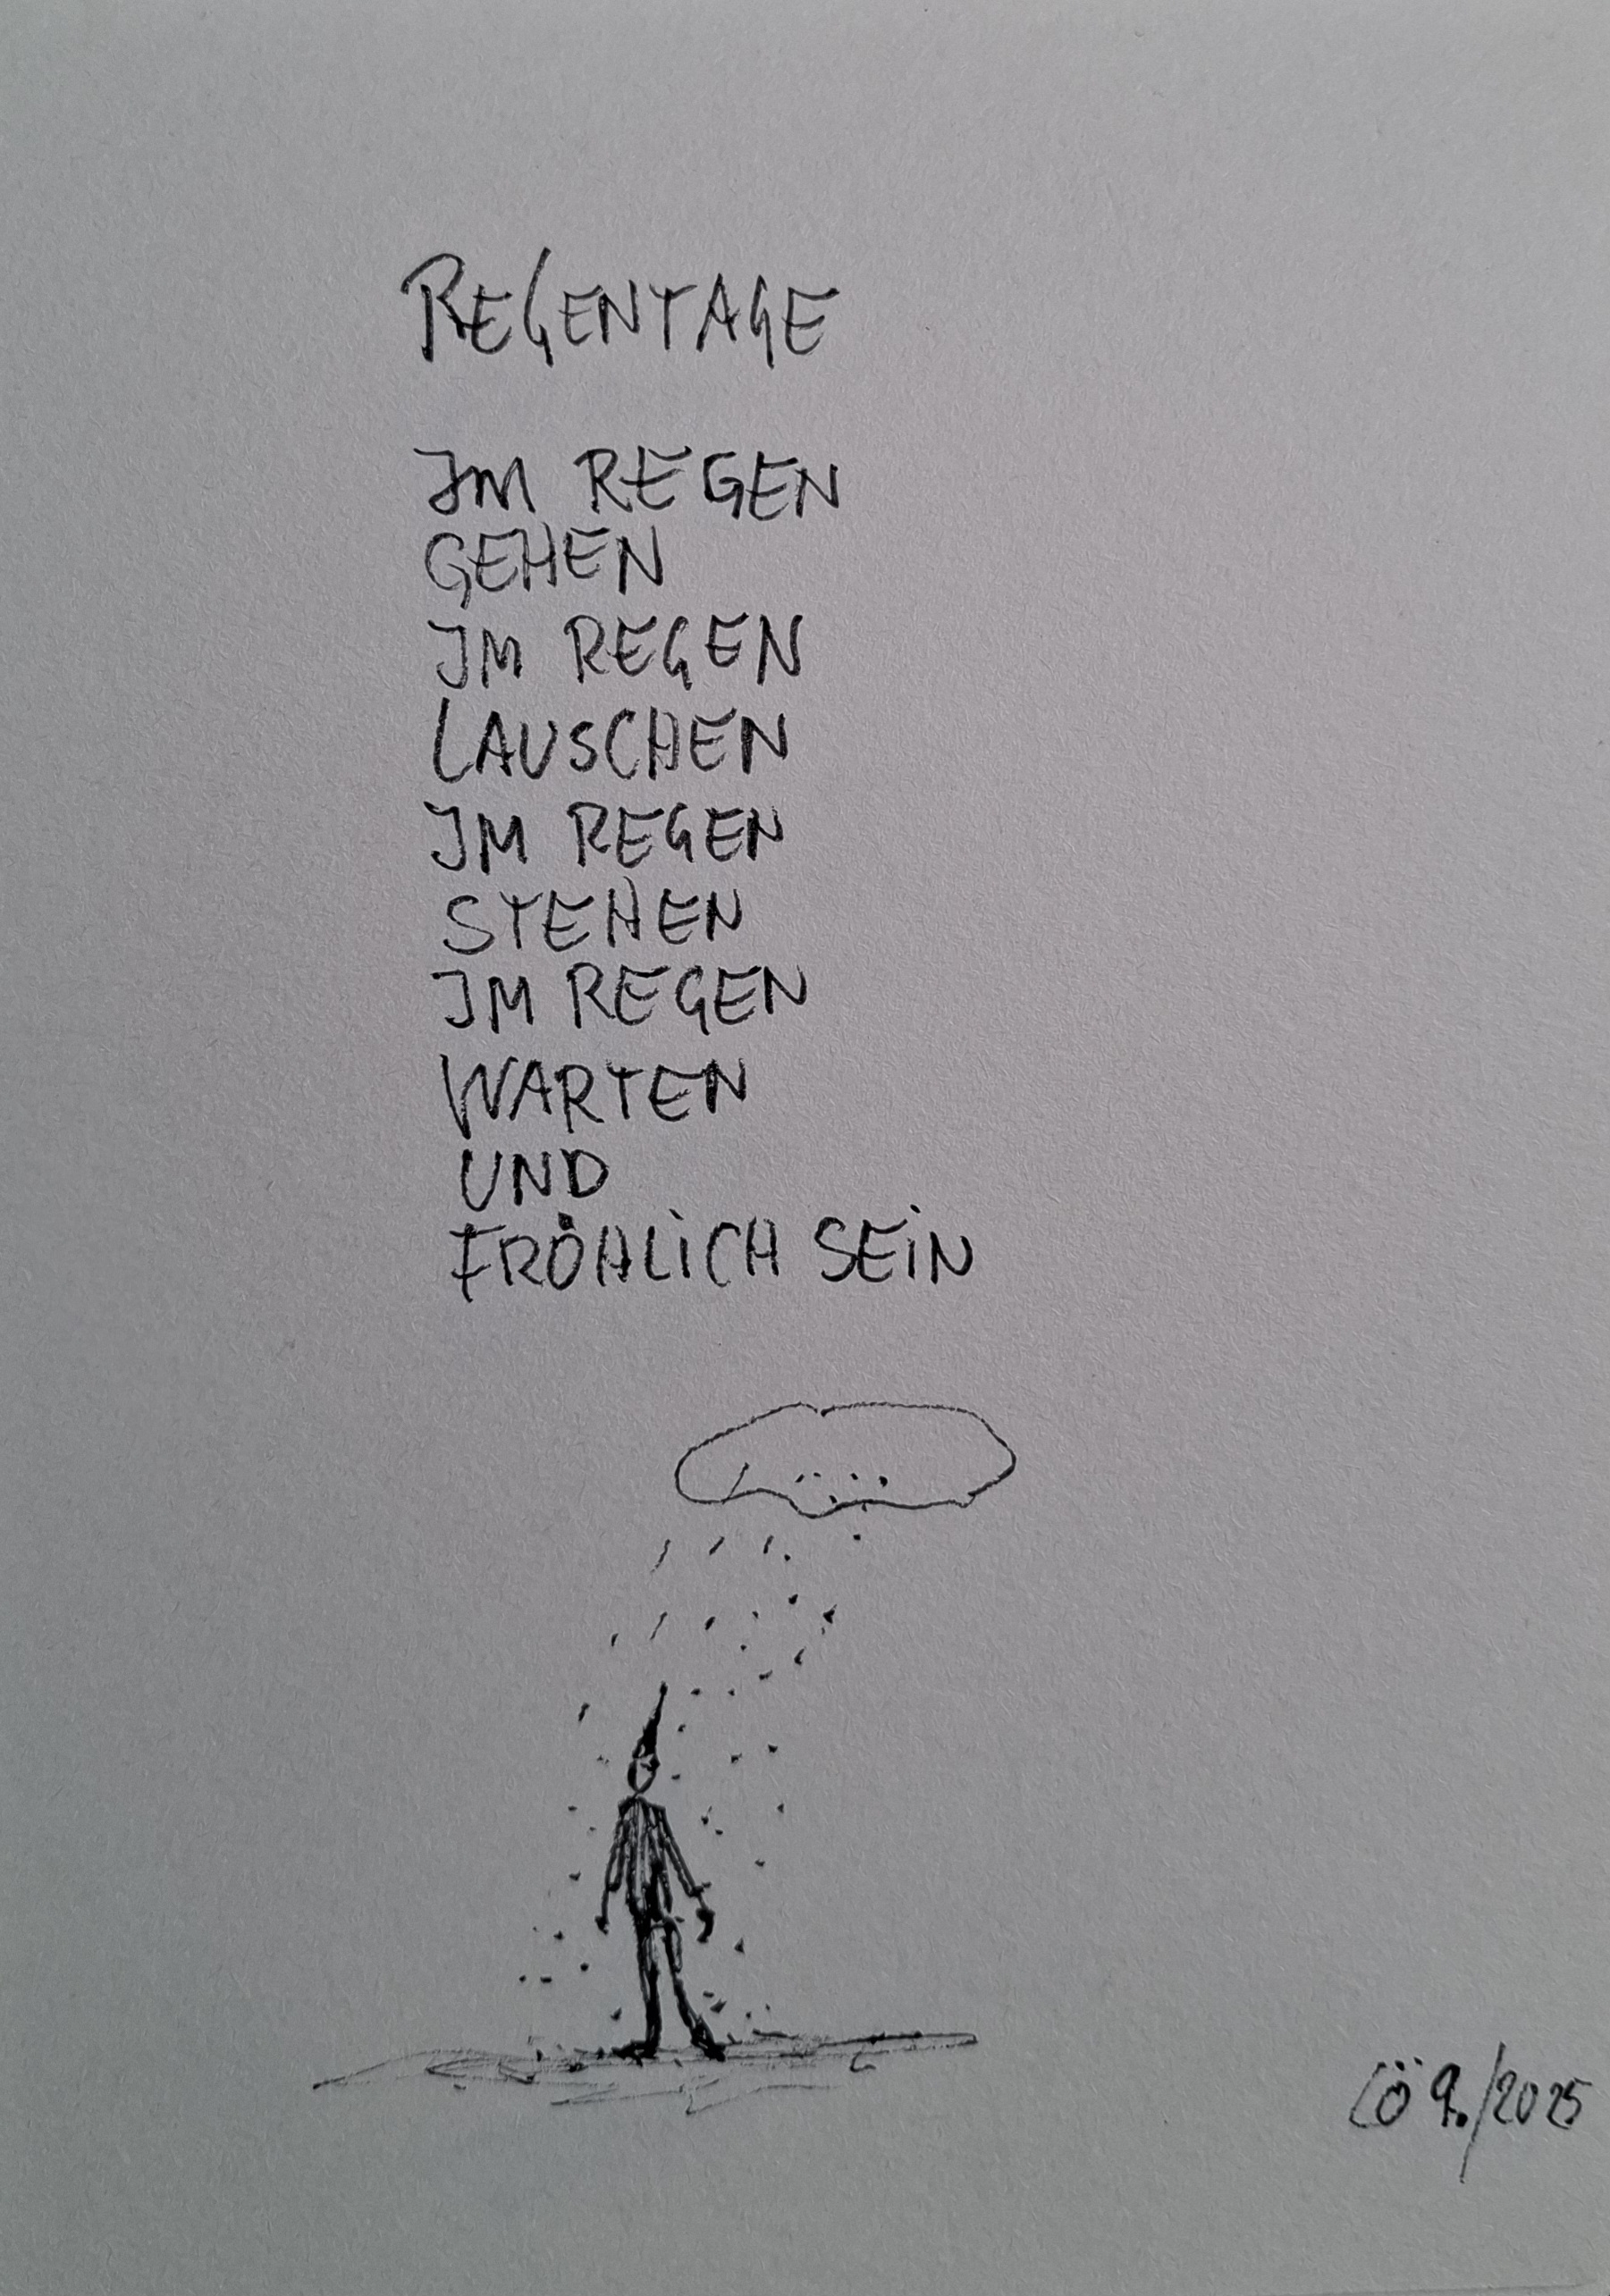 REGENTAGE
IM REGEN
GEHEN
IM REGEN
LAUSCHEN
IM REGEN
STEHEN
IM REGEN
WARTEN
UND
FRÖHLICH SEIN
LÖ 9./2025